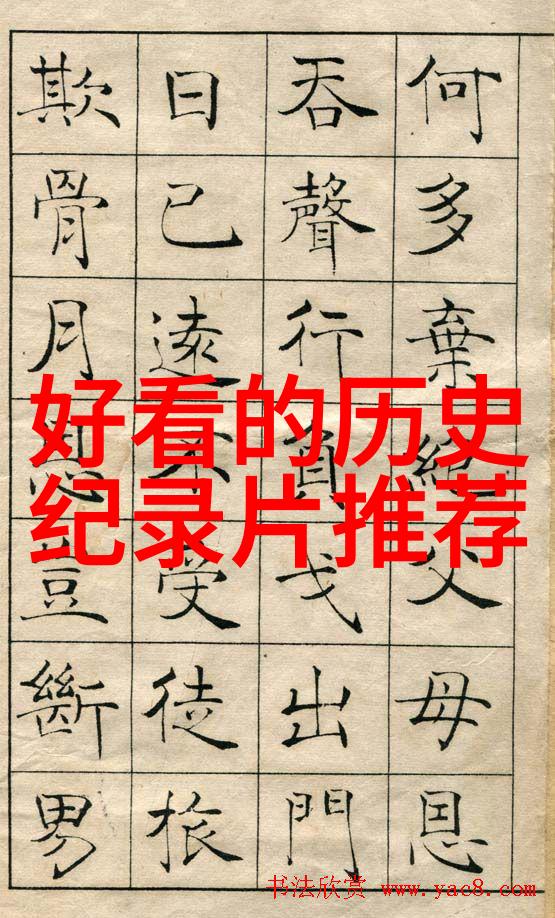 何多棄絕父母恩
吞聲行負戈出門
日已遠不受徒旅
欺骨月恩豈斷男
好看的历史
纪录片推荐
书法欣赏 www.yac8.com